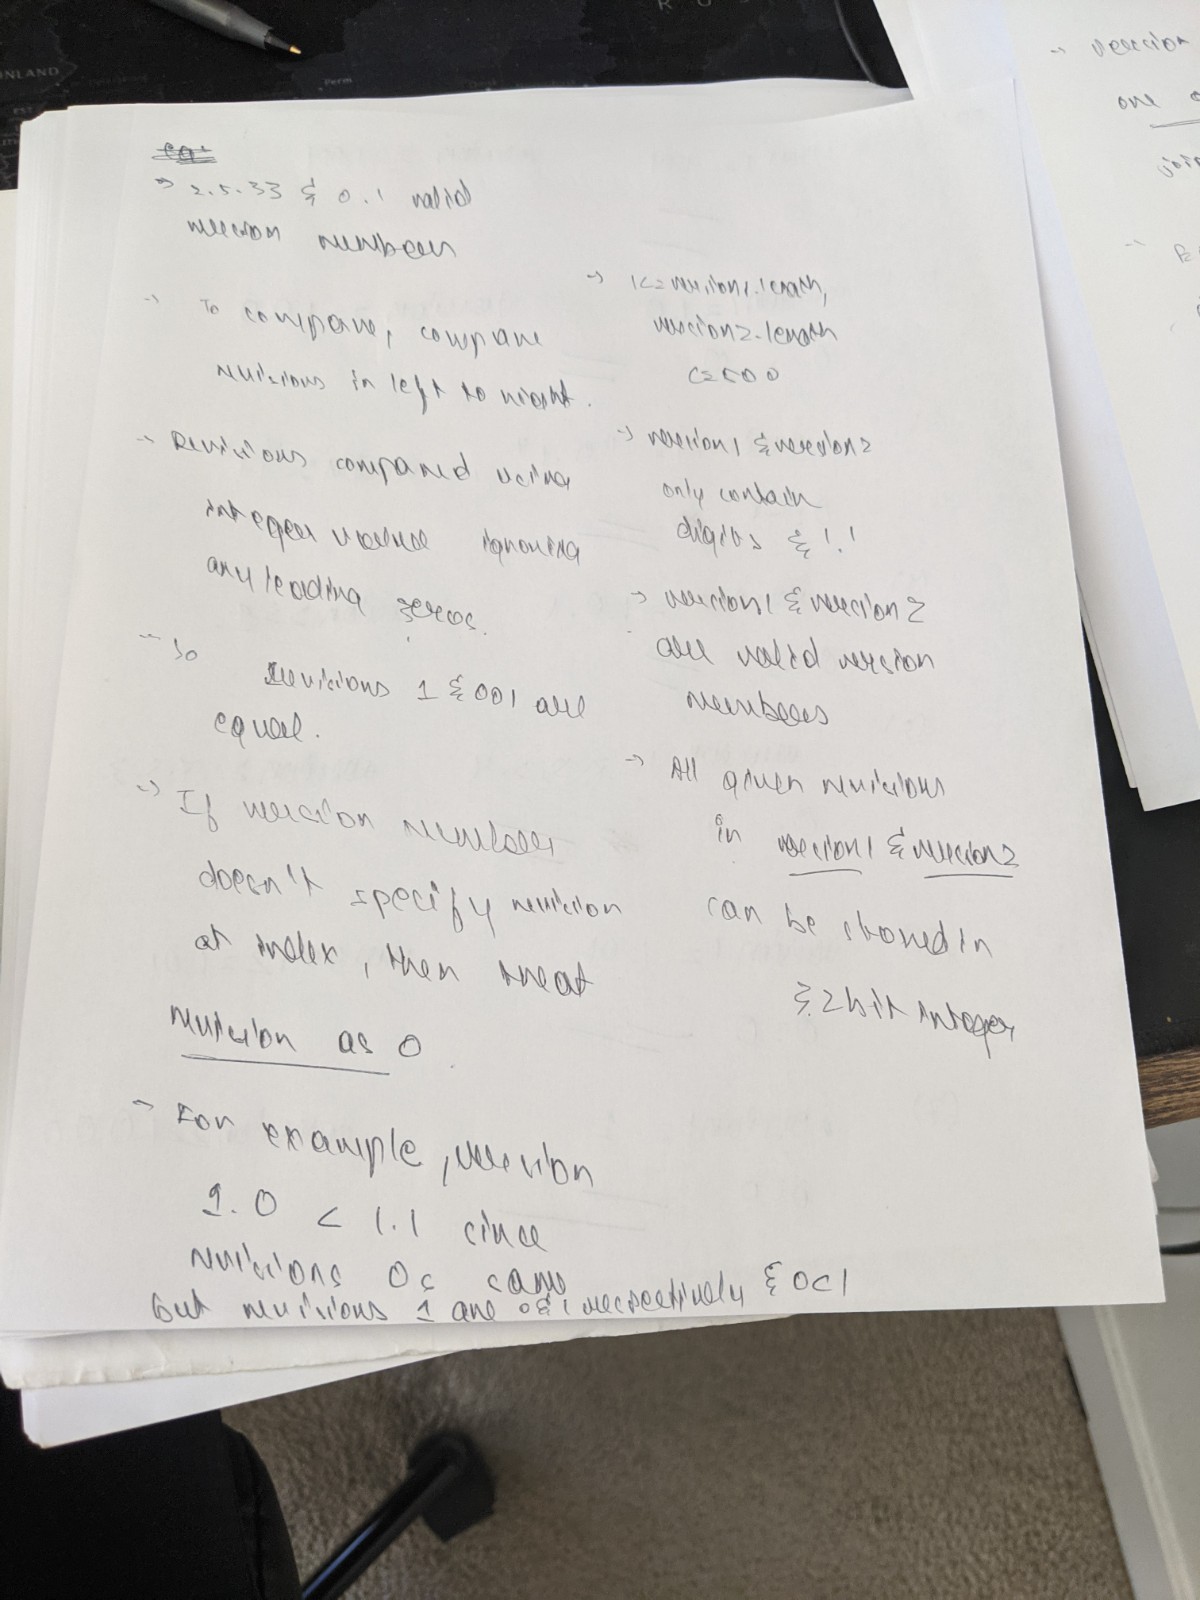 eg:
→ 2.5.33 & 0.1 valid
version numbers
→ To compare, compare
revisions in left to right.
→ Revisions compared using
integer value ignoring
any leading zeros.
→ So
revisions 1 & 001 are
equal.
→ If version number
doesn't specify revision
at index, then treat
revision as 0.
→ For example, version
1.0 < 1.1 since
revisions 0s same
but revisions 1 are 0 & 1 respectively & 0<1
→ 1<=version1.length,
version2.length
<=500
→ version1 & version2
only contain
digits & '.'
→ version1 & version2
are valid version
numbers
→ All given revisions
in version1 & version2
can be stored in
32 bit integer
→ version
one
NLAND
Perm
R U